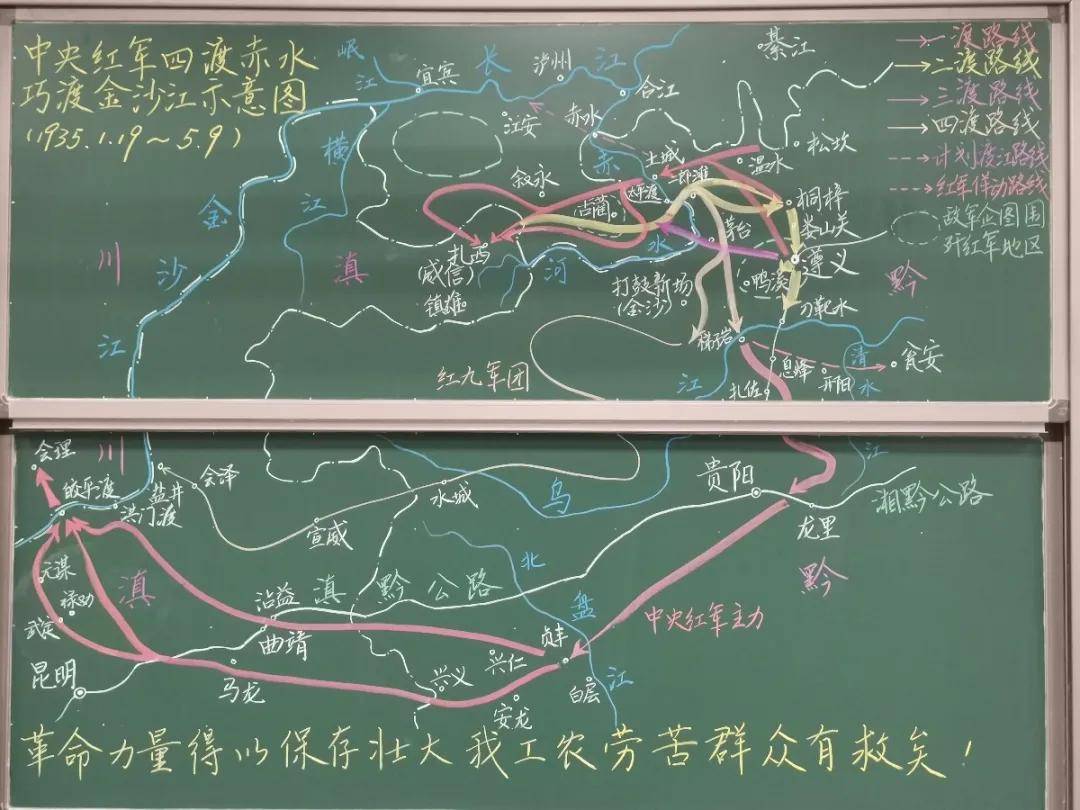 中央红军四渡赤水
巧渡金沙江示意图
(1935.1.19～5.9)
岷江
宜宾
长江
泸州
合江
綦江
一渡路线
二渡路线
三渡路线
四渡路线
计划渡江路线
红军佯动路线
敌军企图围
歼红军地区
江安
赤水
赤水河
横江
土城
温水
松坎
叙永
太平渡
二郎滩
古蔺
桐梓
娄山关
茅台
遵义
金沙江
川
滇
扎西
(威信)
镇雄
打鼓新场
(金沙)
鸭溪
刀靶水
黔
红九军团
江
息烽
开阳
清水
瓮安
扎佐
会理
川
皎平渡
盐井
会泽
洪门渡
水城
乌
贵阳
江
湘黔公路
龙里
宣威
元谋
禄劝
武定
滇
沾益
滇黔公路
北盘江
黔
中央红军主力
曲靖
贞丰
昆明
马龙
兴义
兴仁
安龙
白层
革命力量得以保存壮大我工农劳苦群众有救矣！